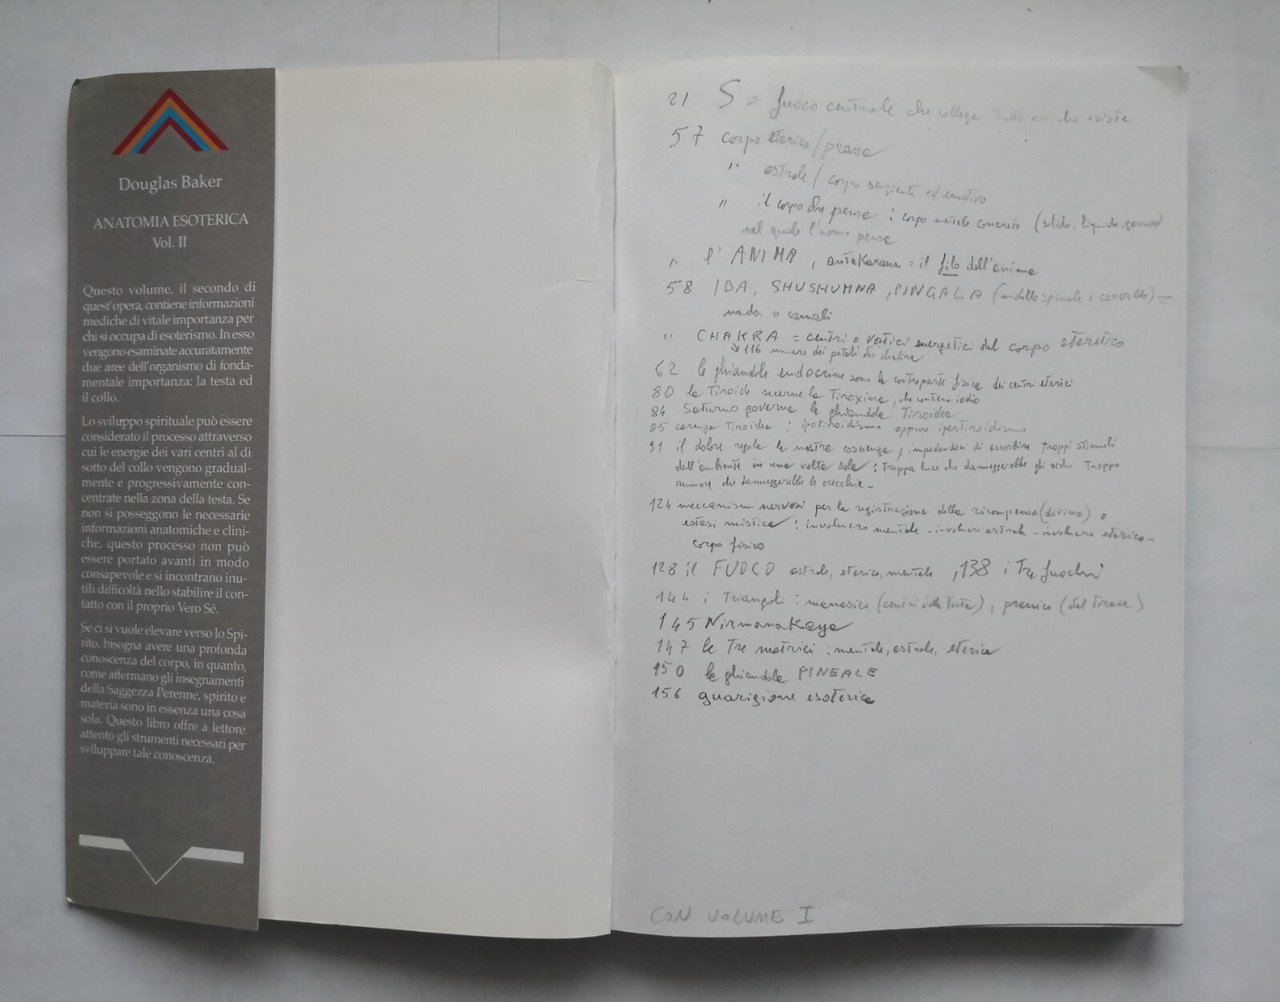 Douglas Baker
ANATOMIA ESOTERICA
Vol. II
Questo volume, il secondo di
quest'opera, contiene informazioni
mediche di vitale importanza per
chi si occupa di esoterismo. In esso
vengono esaminate accuratamente
due aree dell'organismo di fonda-
mentale importanza: la testa ed
il collo.
Lo sviluppo spirituale può essere
considerato il processo attraverso
cui le energie dei vari centri al di
sotto del collo vengono gradual-
mente e progressivamente con-
centrate nella zona della testa. Se
non si posseggono le necessarie
informazioni anatomiche e clini-
che, questo processo non può
essere portato avanti in modo
consapevole e si incontrano inu-
tili difficoltà nello stabilire il con-
tatto con il proprio Vero Sé.
Se ci si vuole elevare verso lo Spi-
rito, bisogna avere una profonda
conoscenza del corpo, in quanto,
come affermano gli insegnamenti
della Saggezza Perenne, spirito e
materia sono in essenza una cosa
sola. Questo libro offre a lettore
attento gli strumenti necessari per
sviluppare tale conoscenza.
21 S = fuoco centrale che collega tutto ciò che esiste
57 corpo eterico/prana
" astrale / corpo senziente ed emotivo
" il corpo che pensa : corpo mentale concreto (solido, liquido, gassoso)
nel quale l'uomo pensa
" l'ANIMA, antakarana = il filo dell'anima
58 IDA, SHUSHUMNA, PINGALA (midollo spinale e cervello) =
nadi o canali
" CHAKRA = centri o vortici energetici del corpo eterico
116 numero dei petali dei chakra
62 le ghiandole endocrine sono la controparte fisica dei centri eterici
80 la Tiroide secerne la Tiroxina, che contiene iodio
84 Saturno governa la ghiandola Tiroidea
85 carenza Tiroidea : ipotiroidismo oppure ipertiroidismo
91 il dolore regola la nostra coscienza, impedendoci di assorbire troppi stimoli
dall'ambiente in una volta sola : Troppa luce che danneggerebbe gli occhi Troppo
rumore che danneggerebbe le orecchie -
124 meccanismi nervosi per la registrazione della ricompensa (divina) o
estasi mistica : involucro mentale - involucro astrale - involucro eterico -
corpo fisico
128 il FUOCO astrale, eterico, mentale, 138 i Tre fuochi
144 i Triangoli : manasico (centri della testa), pranico (del torace)
145 Nirmanakaya
147 le Tre matrici : mentale, astrale, eterica
150 la ghiandola PINEALE
156 guarigione esoterica
CON VOLUME I